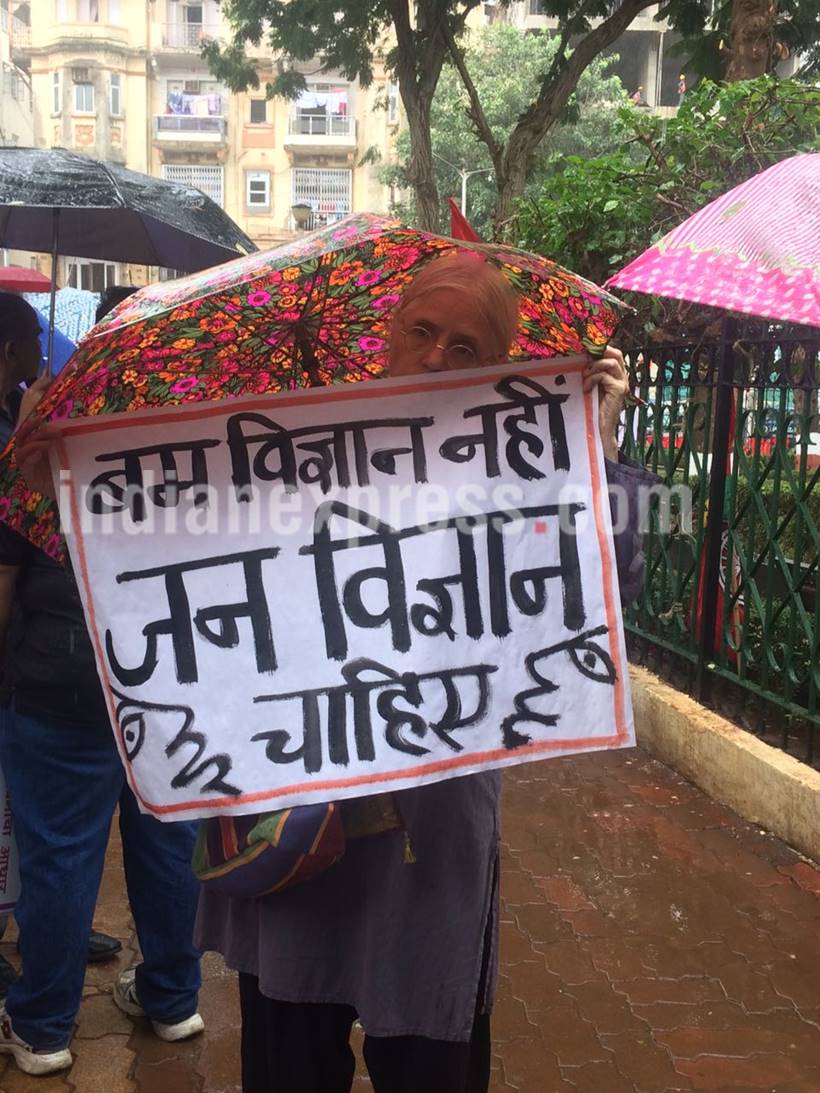 बम विज्ञान नहीं
indianexpress.com
जन विज्ञान
चाहिए